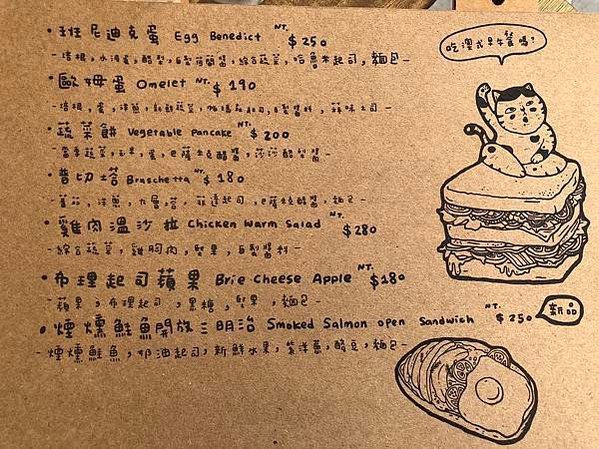 • 班尼迪克蛋 Egg Benedict NT. $250
吃澳式早午餐嗎?
- 培根, 水波蛋, 酪梨, 自製荷蘭醬, 綜合蔬菜, 哈魯米起司, 麵包 -
• 歐姆蛋 Omelet NT. $190
- 培根, 蛋, 洋蔥,
• 蔬菜餅 Vegetable Pancake NT. $200
- 當季蔬菜, 玉米, 蛋, 巴薩米克醋醬, 莎莎酪梨醬 -
• 普切塔 Bruschetta NT. $180
洋蔥, 九層塔, 菲達起司, 巴薩米克醋醬, 麵包 -
• 雞肉溫沙拉 Chicken Warm Salad NT. $280
- 綜合蔬菜, 雞胸肉, 堅果, 自製醬料 -
• 布理起司蘋果 Brie Cheese Apple NT. $180
- 蘋果, 布理起司, 黑糖, 堅果, 麵包 -
• 煙燻鮭魚開放三明治 Smoked Salmon open Sandwich NT. $250 新品
- 煙燻鮭魚, 奶油起司, 新鮮水果, 紫洋蔥, 酸豆, 麵包 -